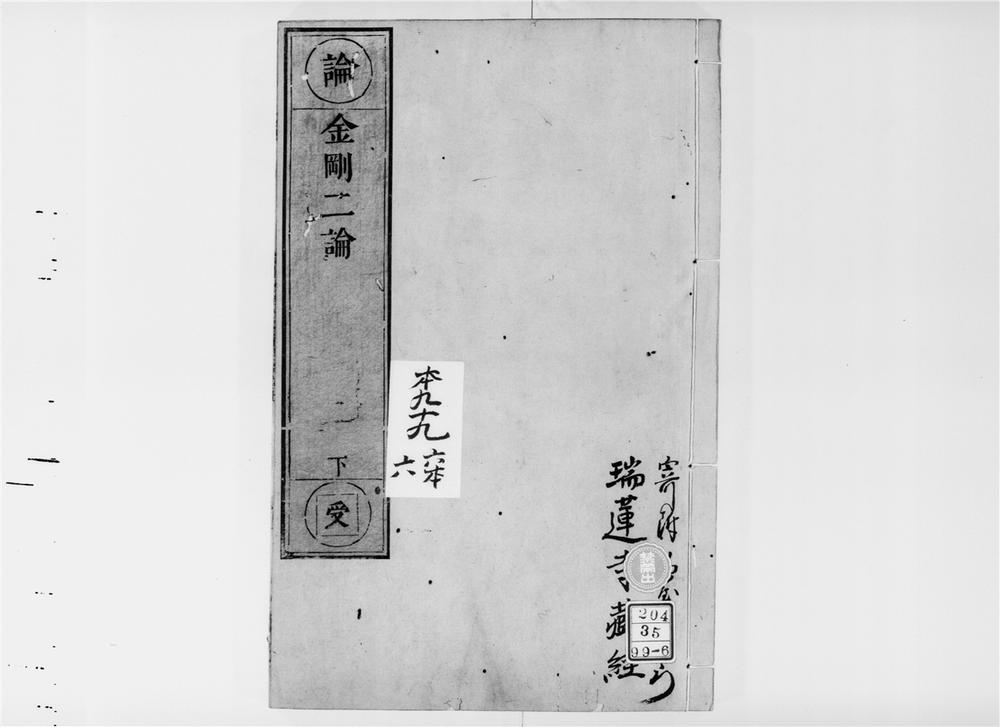 論
金剛二論
下
受
本九十九
六本
六
寄附
瑞蓮寺藏經
禁帶出
204
35
99-6